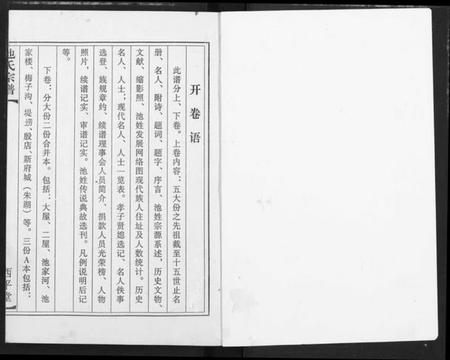 开卷语
此谱分上、下卷。上卷内容：五大份之先祖截至十五世止名
册、名人、附诗、题词、题字、序言、池姓宗源系述，历史文物、
文献、缩影照、池姓发展网络图现代族人住址及人数统计。历史
名人、人士；现代名人、人士一览表。孝子贤媳选记、名人佚事
选登、族规章约、续谱理事会人员简介、捐款人员光荣榜、人物
照片，续谱记实、审谱记实。池姓传说典故选刊。凡例说明后记
等。
下卷：分大份二份合并本。包括：大屋、二屋、池家河、池
家楼、梅子沟、堤涝、殷店、新府城（朱湖）等。三份A本包括：
池氏宗谱
西平堂